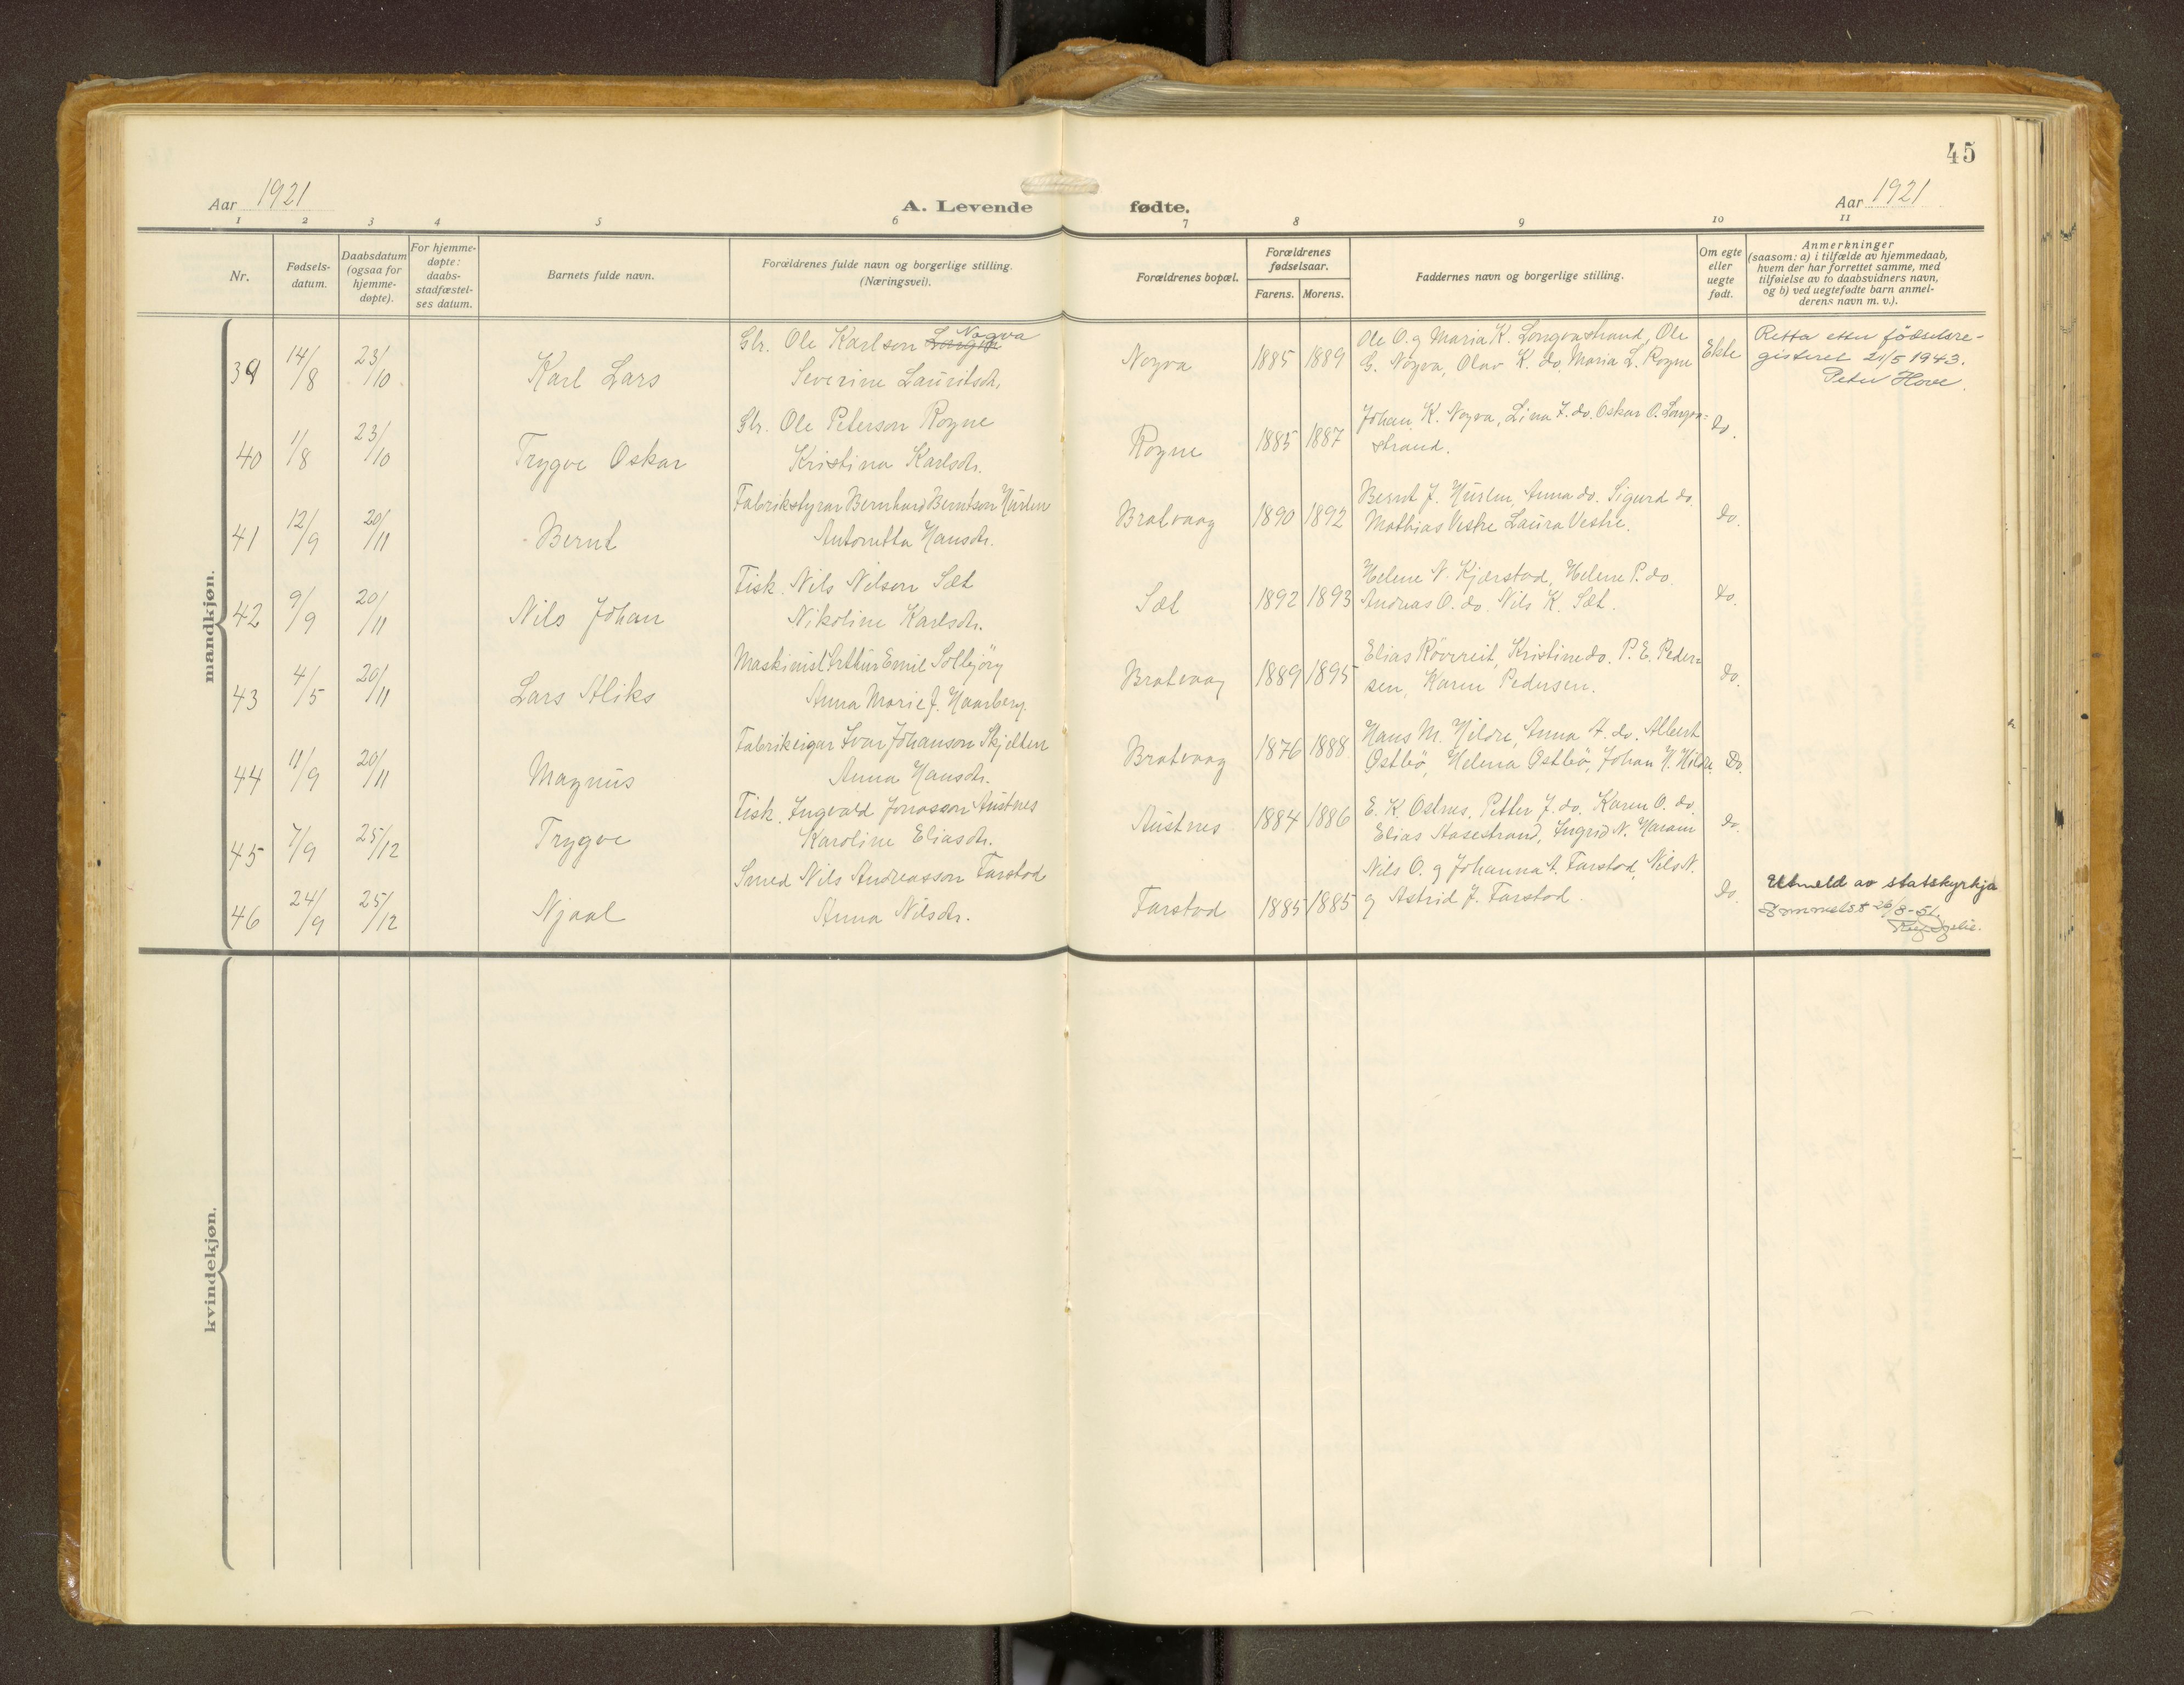 45
Aar 1921
A. Levende fødte.
Aar 1921
1 2 3 4 5 6 7 8 9 10 11
Nr.
Fødsels-
datum.
Daabsdatum
(ogsaa for
hjemme-
døpte).
For hjemme-
døpte:
daabs-
stadfæstel-
ses datum.
Barnets fulde navn.
Forældrenes fulde navn og borgerlige stilling.
(Næringsvei).
Forældrenes bopæl.
Forældrenes
fødselsaar.
Farens. Morens.
Faddernes navn og borgerlige stilling.
Om egte
eller
uegte
født.
Anmerkninger
(saasom: a) i tilfælde av hjemmedaab,
hvem der har forrettet samme, med
tilføielse av to daabsvidners navn,
og b) ved uegtefødte barn anmel-
derens navn m. v.).
mandkjøn.
39 14/8 23/10 Karl Lars
Gbr. Ole Karlson Nogva
Severine Lauritsdr.
Nogva 1885 1889
Ole O. g Maria K. Longvastrand, Ole
G. Nogva, Olav K. do. Maria L. Rogne
Ekte
Retta etter födselsre-
gisteret 21/5 1943.
Peter Hove.
40 1/8 23/10 Trygve Oskar
Gbr. Ole Peterson Rogne
Kristina Karlsdr.
Rogne 1885 1887
Johan K. Nogva, Lina J. do. Oskar O. Longva=
strand.
do.
41 12/9 20/11 Bernt
Fabrikstyrar Bernhard Berntson Hurlen
Antonetta Hansdr.
Bratvaag 1890 1892
Bernt J. Hurlen, Anna do. Sigurd do.
Mathias Vestre Laura Vestre.
do.
42 9/9 20/11 Nils Johan
Fisk. Nils Nilson Sæt
Nikoline Karlsdr.
Sæt 1892 1893
Helene N. Kjærstad, Helene P. do.
Andreas O. do. Nils K. Sæt.
do.
43 4/5 20/11 Lars Aliks
Maskinist Arthur Emil Solbjörg
Anna Marie J. Haarberg.
Bratvaag 1889 1895
Elias Rövereit, Kristine do. P. E. Peder=
sen, Karen Pedersen.
do.
44 11/9 20/11 Magnus
Fabrikeigar Ivar Johanson Skjelten
Anna Hansdr.
Bratvaag 1876 1888
Hans M. Hildre, Anna A. do. Albert
Östbö, Helena Östbö, Johan H. Hildre.
Do.
45 7/9 25/12 Trygve
Fisk. Ingvald Jonasson Austnes
Karoline Eliasdr.
Austnes 1884 1886
E. K. Ostnes, Petter J. do. Karen O. do.
Elias Aasestrand, Ingrid N. Haram
do.
46 24/9 25/12 Njaal
Smed Nils Andreasson Farstad
Anna Nilsdr.
Farstad 1885 1885
Nils O. g Johanna A. Farstad, Nils N.
g Astrid J. Farstad.
do.
Utmeld av statskyrkja
26/8-51.
kvindekjøn.